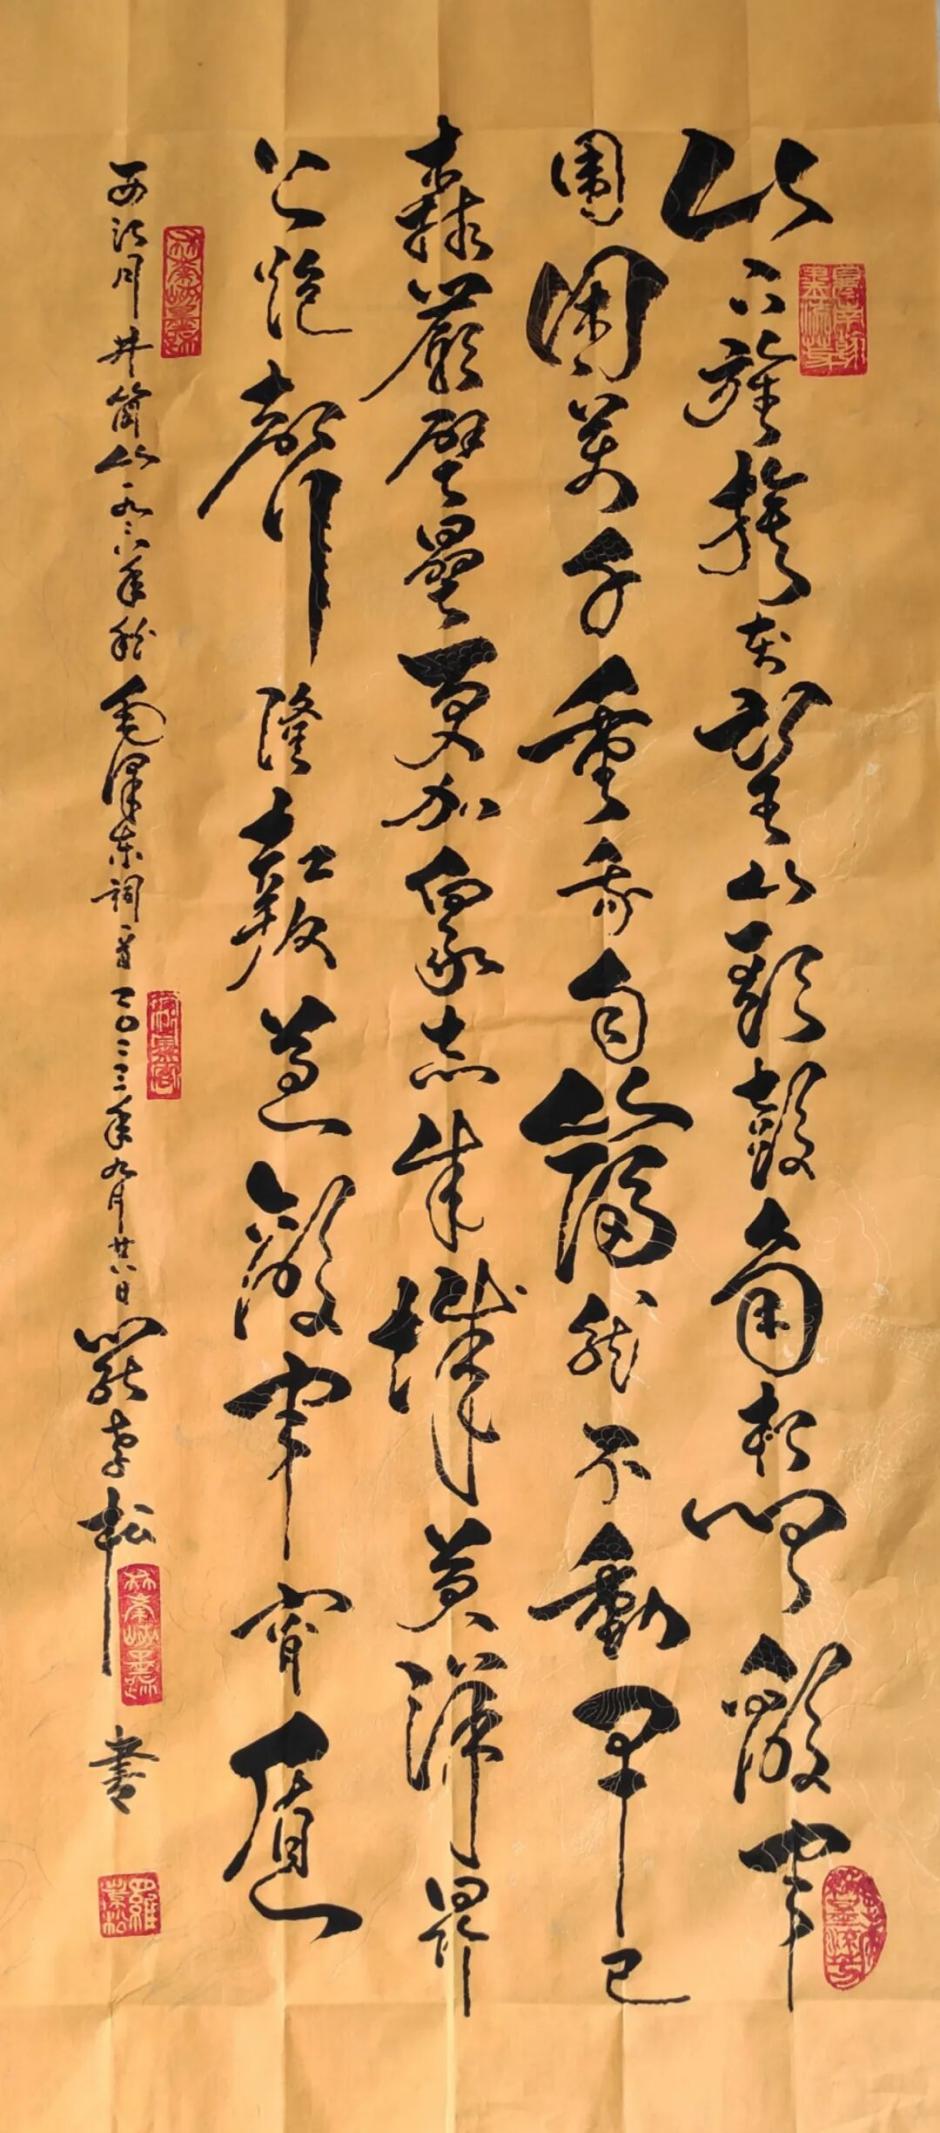 山下旌旗在望山頭鼓角相聞敵軍
圍困萬千重我自巋然不動早已
森嚴壁壘更加眾志成城黃洋界
上炮聲隆報道敵軍宵遁
西江月井岡山一九二八年秋毛澤東詞一首二〇二三年九月廿八日羅松書